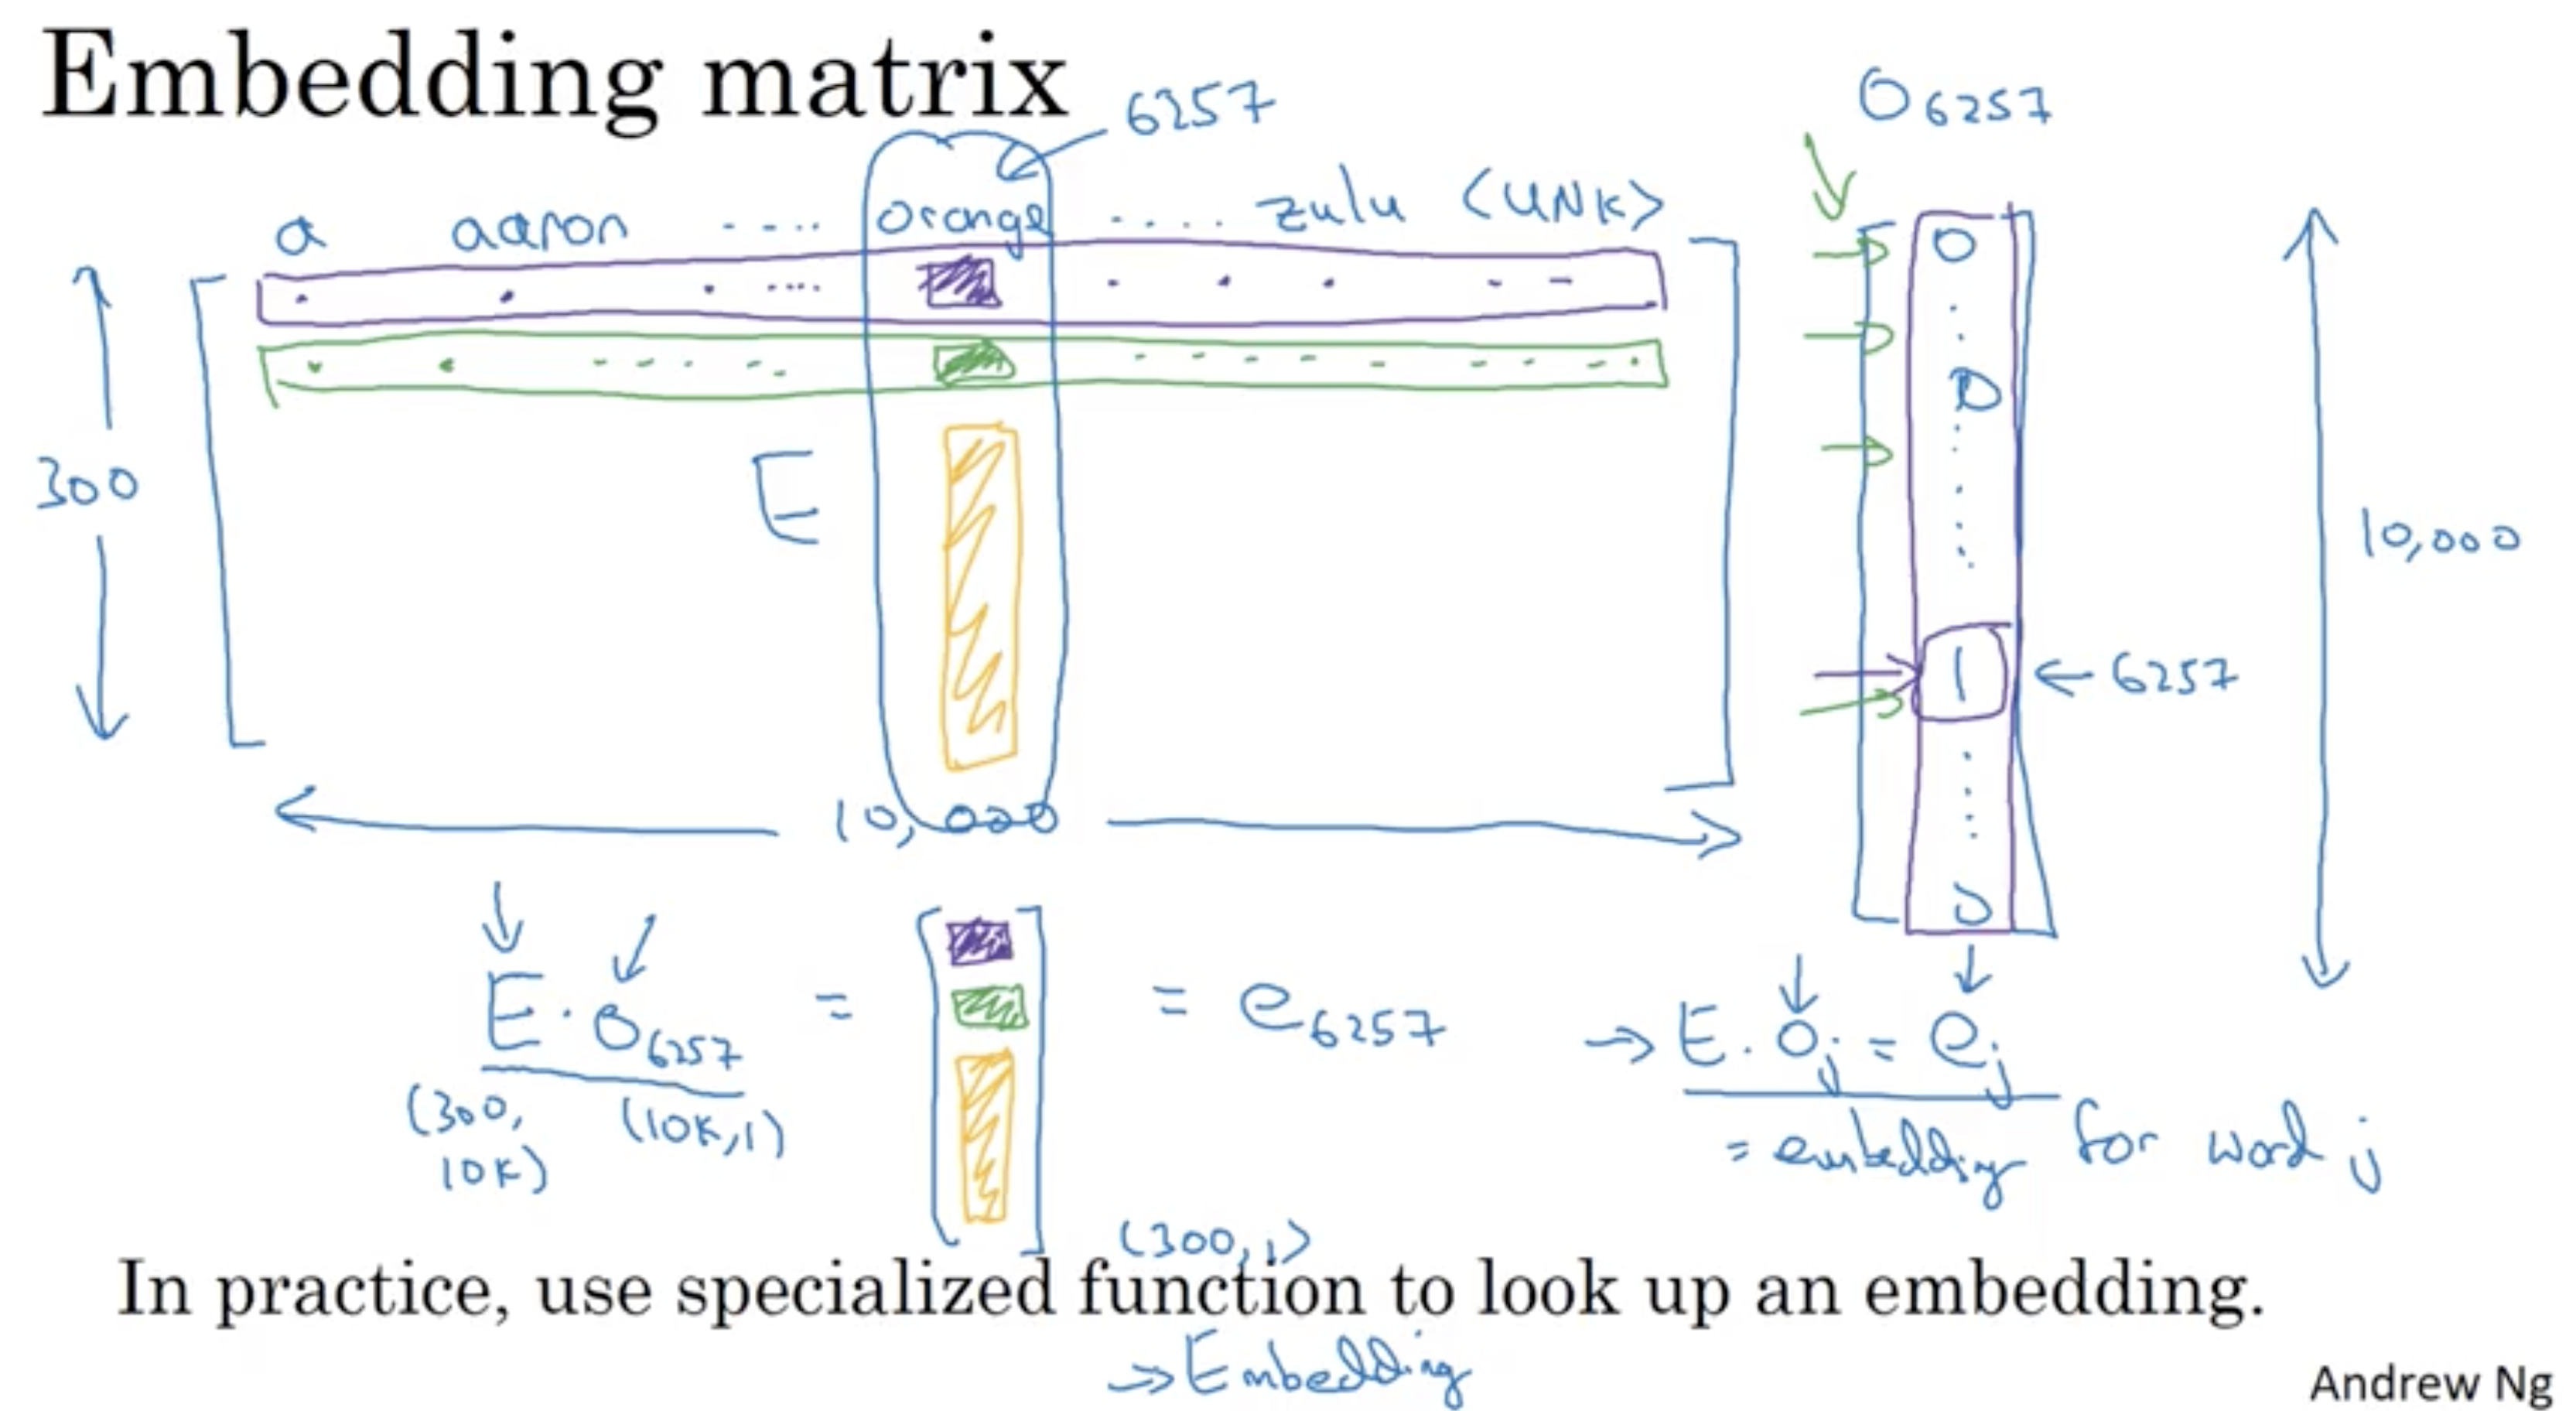 Embedding matrix
6257
O6257
a aaron ---- orange .... zulu <UNK>
0
0
300
E
10,000
1 ← 6257
10,000
0
E · O6257 = [ ] = e6257
(300, 10K) (10K,1)
→ E · Oj = ej
= embedding for word j
(300,1)
In practice, use specialized function to look up an embedding.
→ Embedding
Andrew Ng